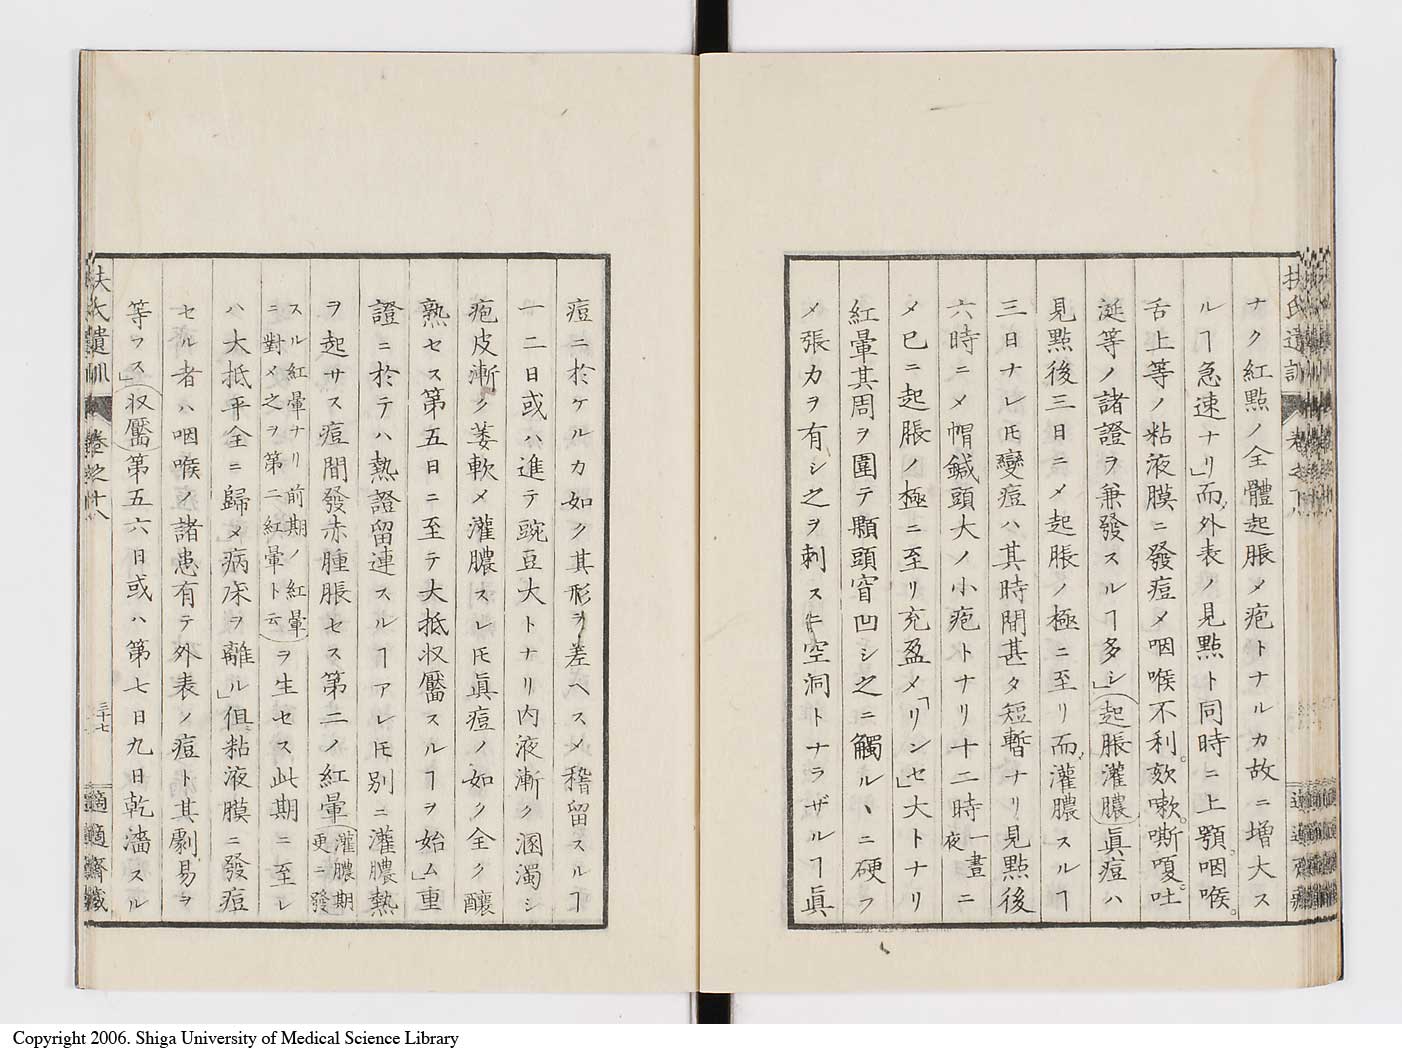 ナク紅點ノ全體起脹メ疱トナルカ故ニ增大ス
ルヿ急速ナリ」而外表ノ見點ト同時ニ上顎。咽喉。
舌上等ノ粘液膜ニ發痘メ咽喉不利。欬嗽。嘶嗄。吐
涎等ノ諸證ヲ兼發スルヿ多シ」(起脹灌膿)眞痘ハ
見點後三日ニメ起脹ノ極ニ至リ而灌膿スルヿ
三日ナレ𪜈變痘ハ其時間甚タ短暫ナリ見點後
六時ニメ帽鍼頭大ノ小疱トナリ十二時一晝夜ニ
メ已ニ起脹ノ極ニ至リ充盈メ「リンセ」大トナリ
紅暈其周ヲ圍テ顆頭窅凹シ之ニ觸ルヽニ硬フ
メ張力ヲ有シ之ヲ刺スニ空洞トナラザルヿ眞
扶氏遺訓 卷之十八 三十七 適適齋藏
痘ニ於ケルカ如ク其形ヲ差ヘスメ稽留スルヿ
一二日或ハ進テ豌豆大トナリ内液漸ク溷濁シ
疱皮漸ク萎軟メ灌膿スレ𪜈眞痘ノ如ク全ク釀
熟セス第五日ニ至テ大抵收靨スルヿヲ始ム」重
證ニ於テハ熱證留連スルヿアレ𪜈別ニ灌膿熱
ヲ起サス痘間發赤腫脹セス第二ノ紅暈(灌膿期更ニ發
スル紅暈ナリ前期ノ紅暈ニ對メ之ヲ第二紅暈ト云)ヲ生セス此期ニ至レ
ハ大抵平全ニ歸メ病床ヲ離ル」但粘液膜ニ發痘
セル者ハ咽喉ノ諸患有テ外表ノ痘ト其劇易ヲ
等フス」(收靨)第五六日或ハ第七日九日乾濇スル
扶氏遺訓
Copyright 2006. Shiga University of Medical Science Library